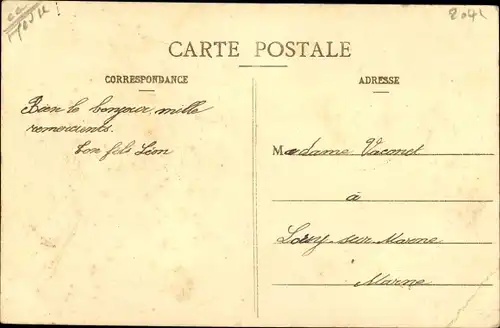 2041
CARTE POSTALE
CORRESPONDANCE
Bien le bonjour, mille
remerciments.
ton fils Léon
ADRESSE
Madame Vaconet
à
Loisy-sur-Marne
Marne